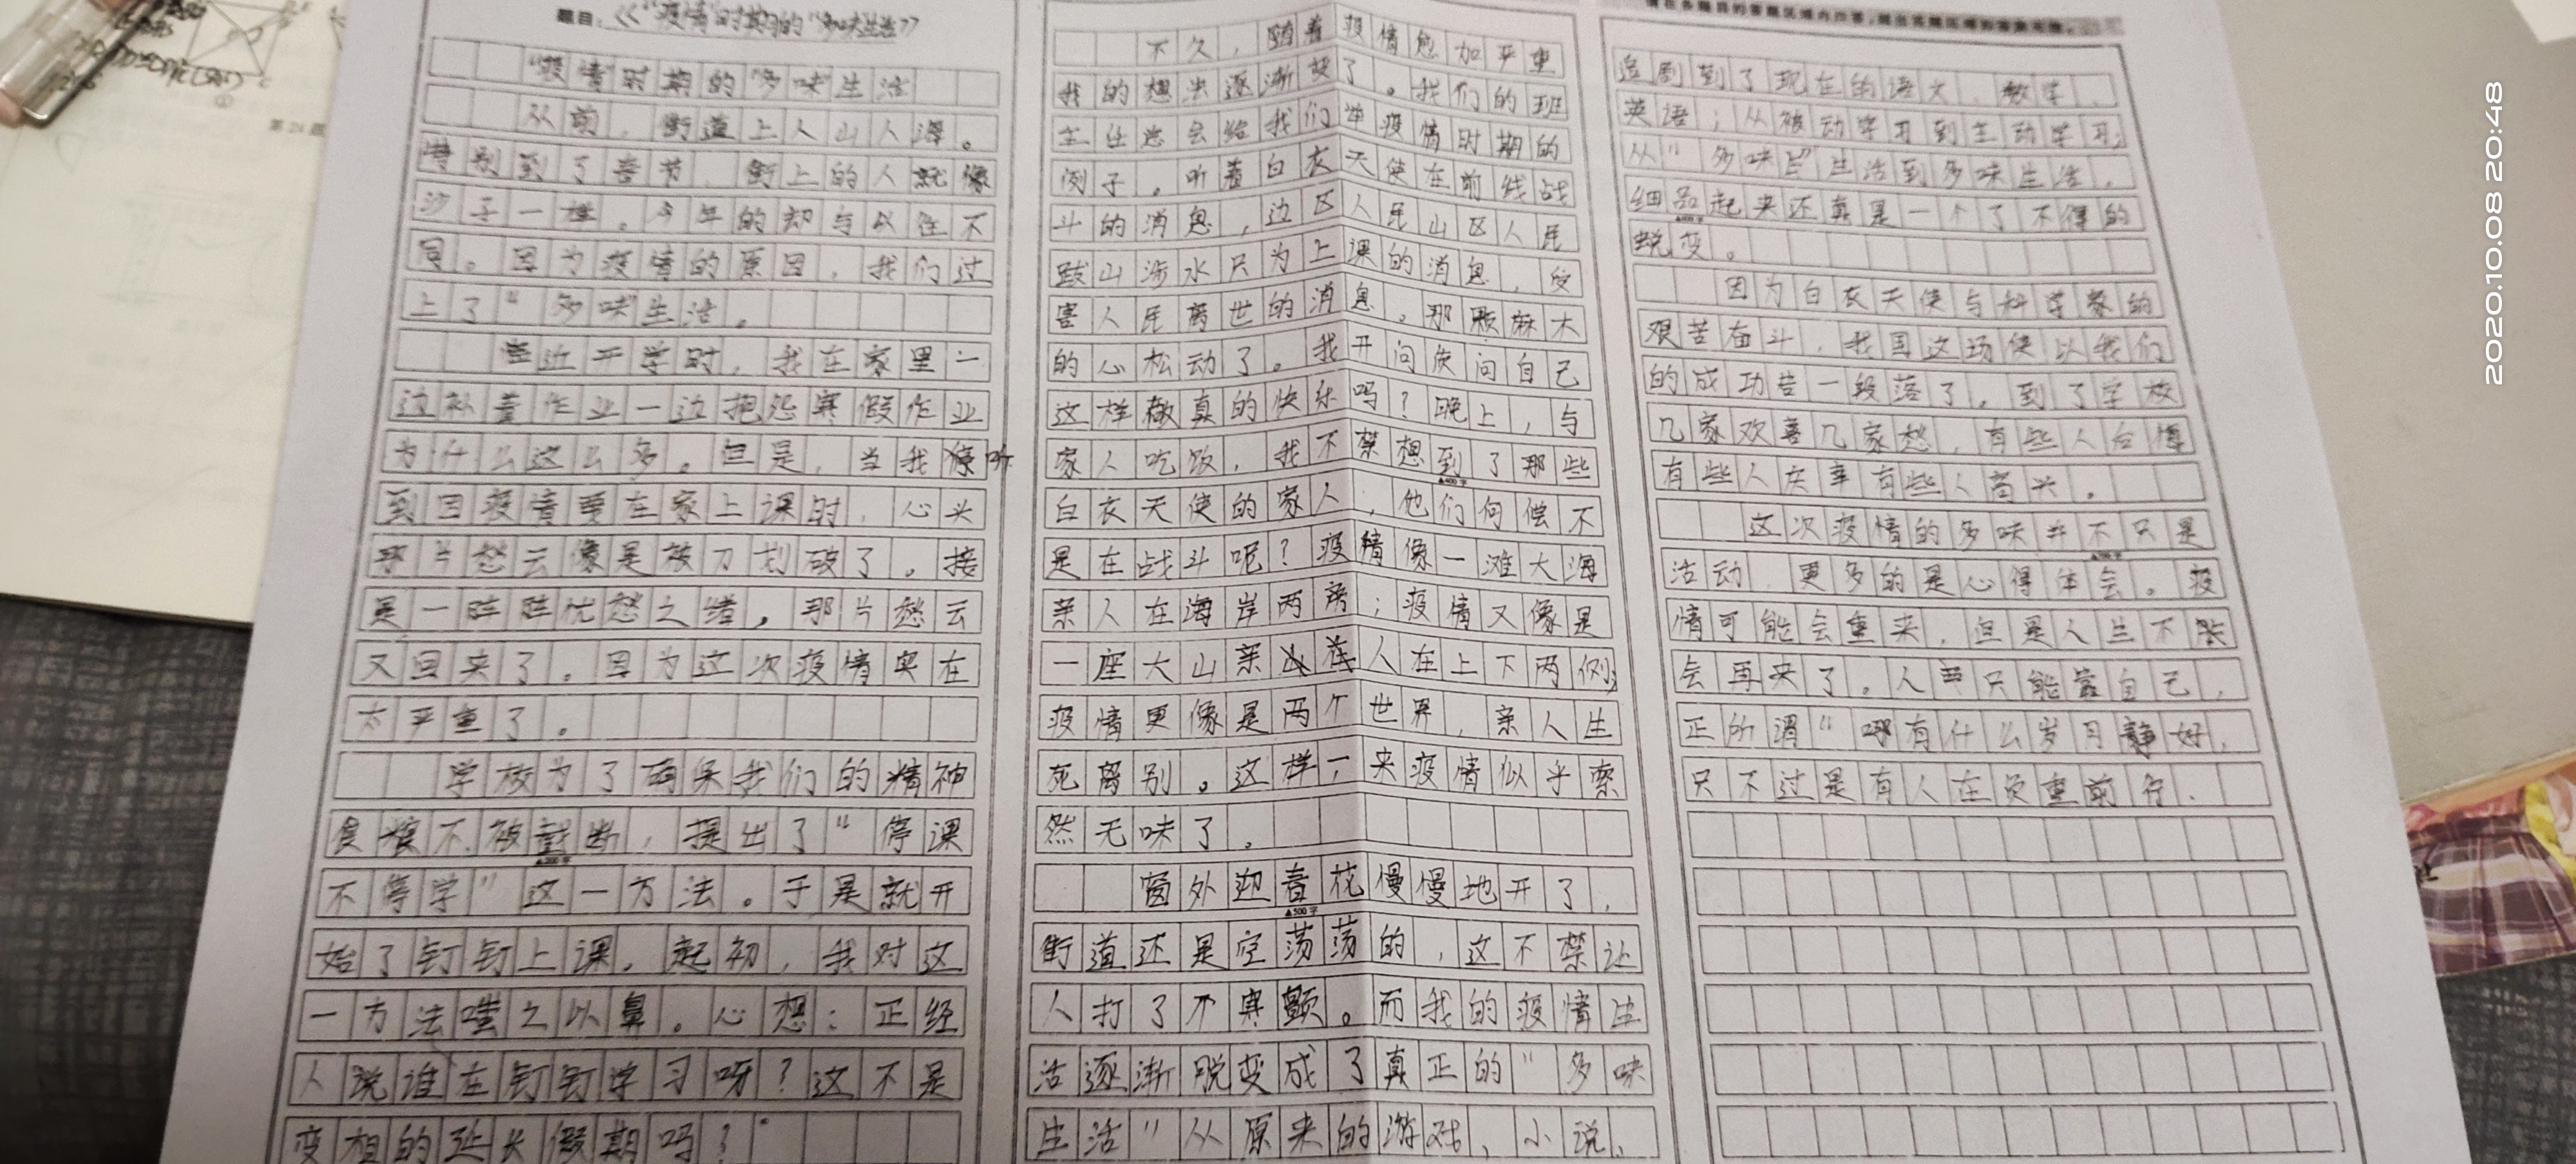 题目:《“疫情”时期的“多味生活》
“疫情”时期的“多味”生活
从前,街道上人山人海。
特别到了春节,街上的人就像
沙子一样。今年的却与以往不
同。因为疫情的原因,我们过
上了“多味”生活。
临近开学时,我在家里一
边补着作业一边抱怨寒假作业
为什么这么多。但是,当我听
到因疫情要在家上课时,心头
那片愁云像是被刀划破了。接
是一阵阵忧愁之绪,那片愁云
又回来了。因为这次疫情实在
太严重了。
学校为了确保我们的精神
食粮不被截断,提出了“停课
不停学”这一方法。于是就开
始了钉钉上课。起初,我对这
一方法嗤之以鼻。心想:正经
人说谁在钉钉学习呀?这不是
变相的延长假期吗?
不久,随着疫情愈加严重
我的想法逐渐变了。我们的班
主任总会给我们举疫情时期的
例子。听着白衣天使在前线战
斗的消息,边区人民山区人民
跋山涉水只为上课的消息,受
害人民离世的消息。那颗麻木
的心松动了。我开问使问自己
这样做真的快乐吗?晚上,与
家人吃饭,我不禁想到了那些
白衣天使的家人,他们何偿不
是在战斗呢?疫情像一滩大海
亲人在海岸两旁;疫情又像是
一座大山亲人在上下两侧;
疫情更像是两个世界,亲人生
死离别。这样一来疫情似乎索
然无味了。
窗外迎春花慢慢地开了,
街道还是空荡荡的,这不禁让
人打了个寒颤。而我的疫情生
活逐渐脱变成了真正的“多味
生活”从原来的游戏,小说,
追剧到了现在的语文,数学,
英语;从被动学习到主动学习;
从“多味”生活到多味生活,
细品起来还真是一个了不得的
蜕变。
因为白衣天使与科学家的
艰苦奋斗,我国这场使以我们
的成功告一段落了。到了学校
几家欢喜几家愁,有些人后悔
有些人庆幸有些人高兴。
这次疫情的多味并不只是
活动,更多的是心得体会。疫
情可能会重来,但是人生不
会再来了。人只能靠自己,
正所谓“哪有什么岁月静好,
只不过是有人在负重前行.
2020.10.08 20:48